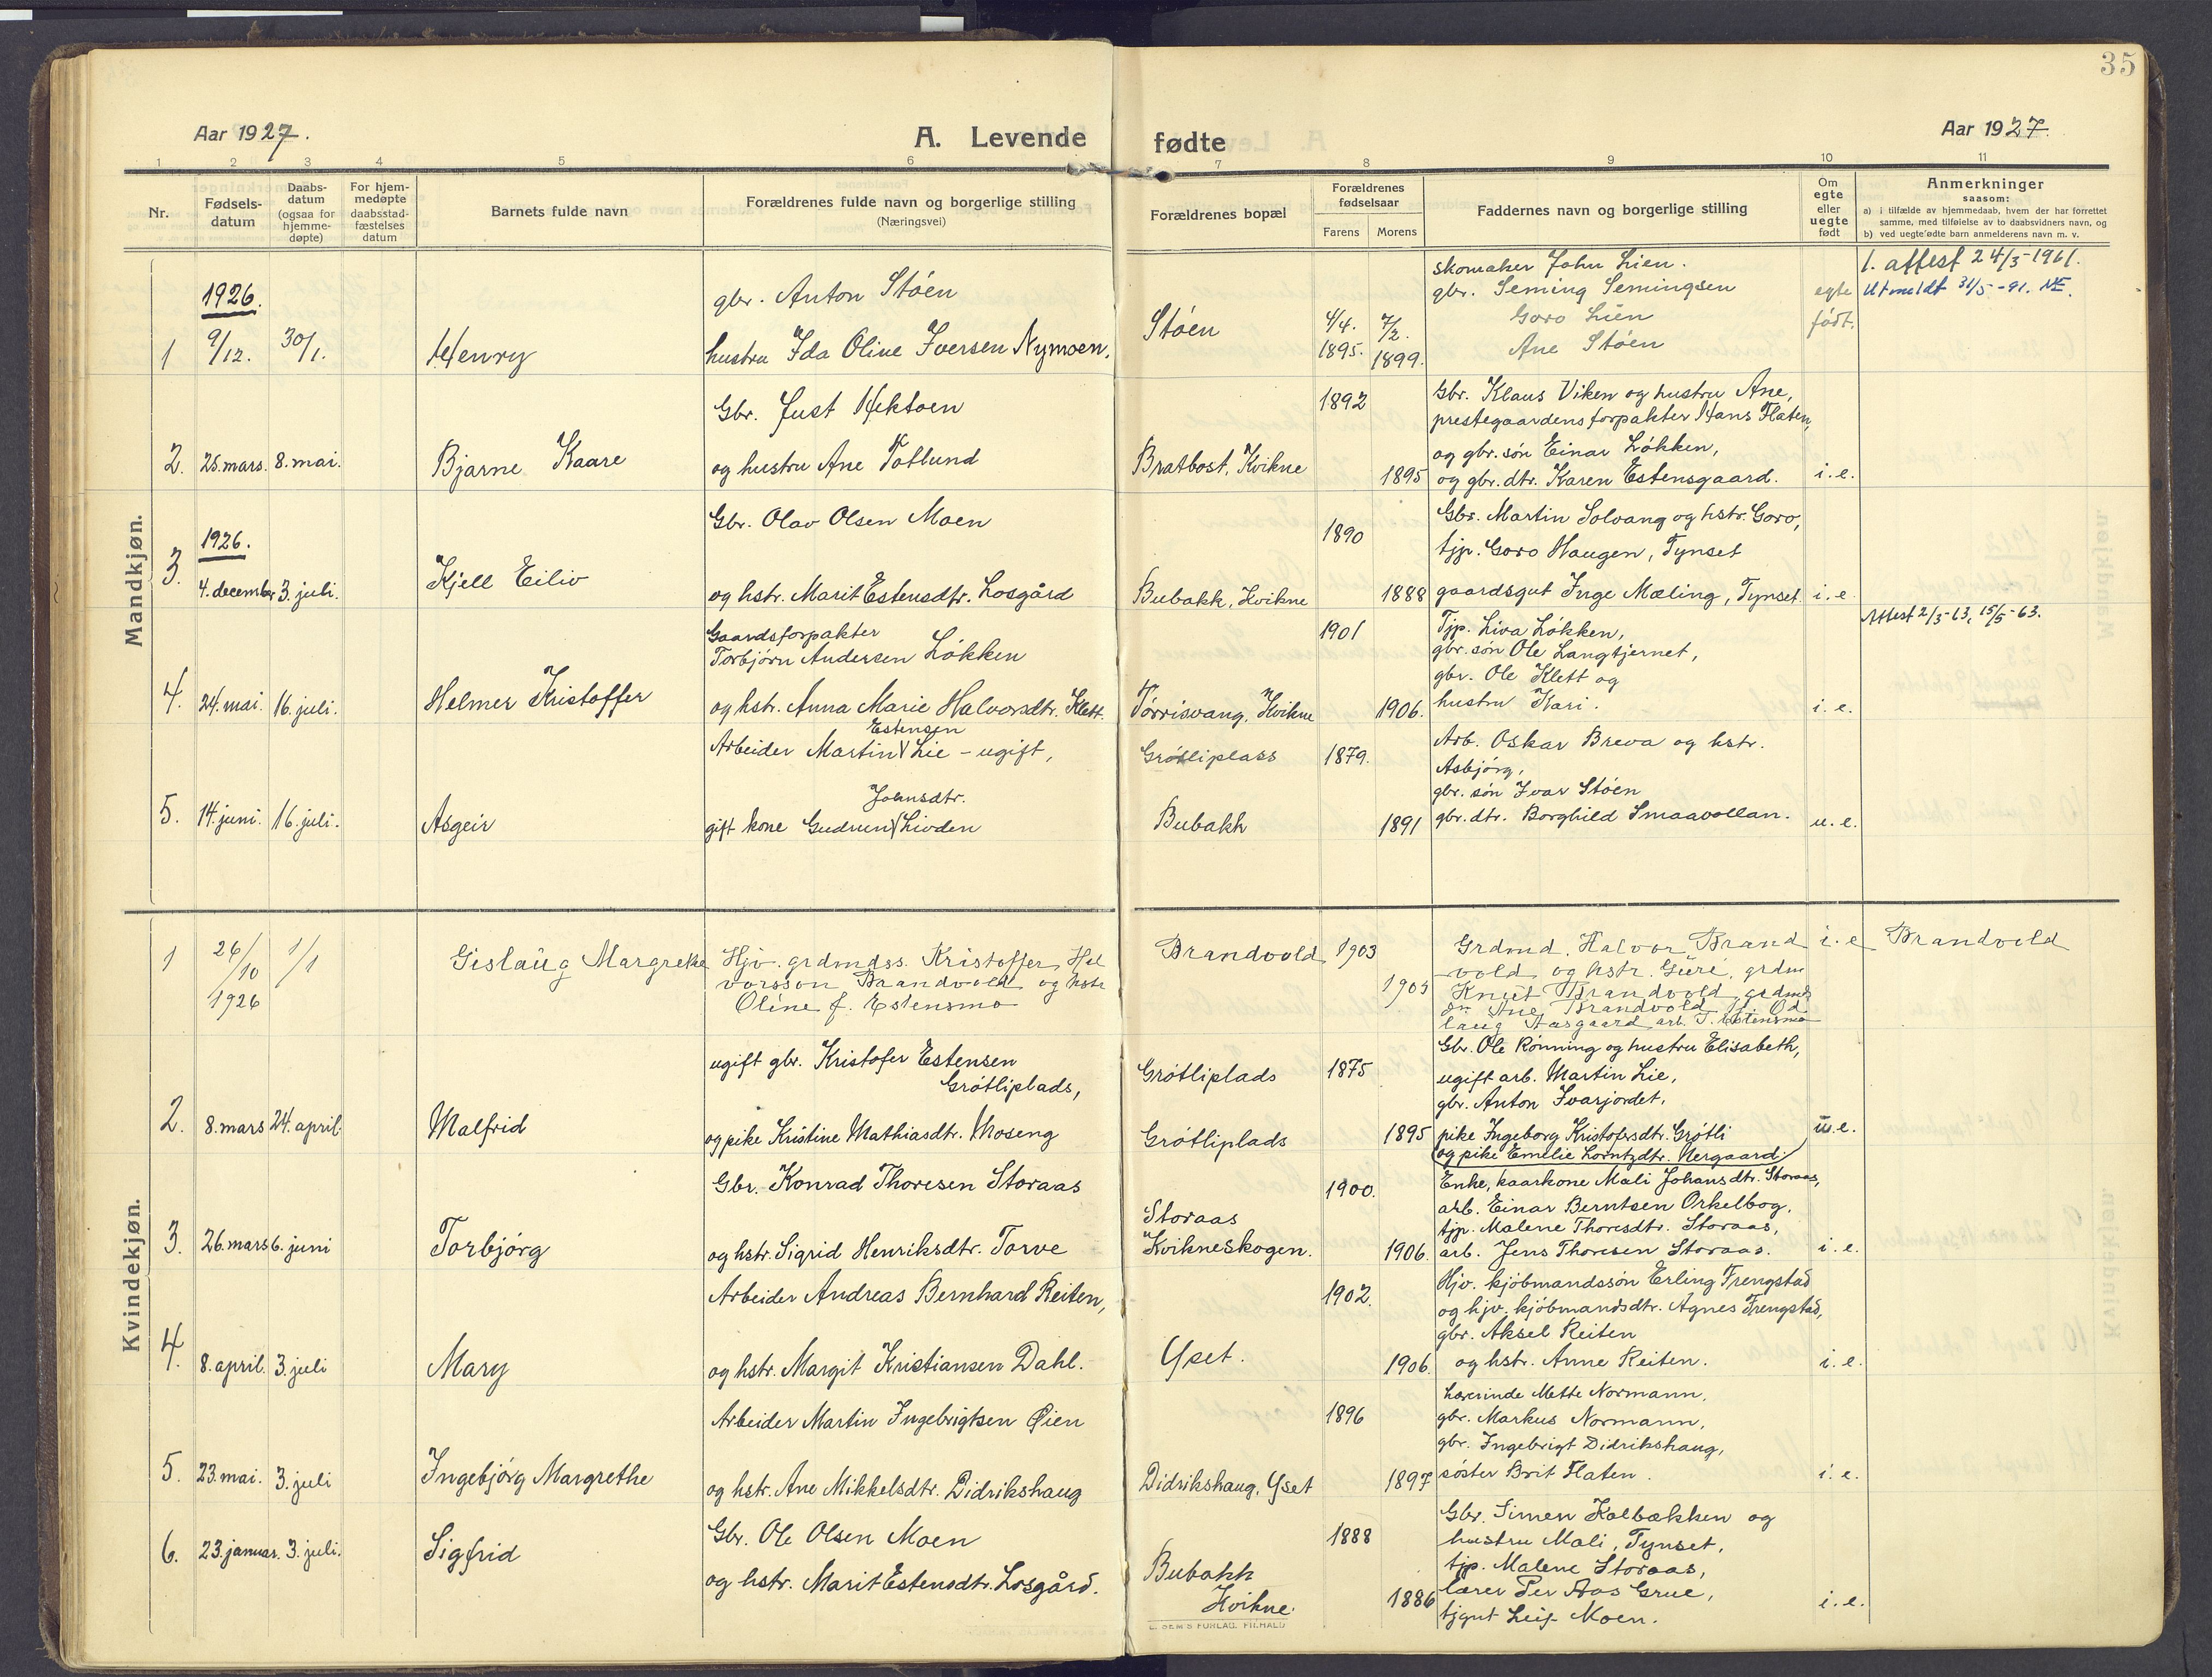 35
Aar 1927.
A. Levende fødte
Aar 1927.
1 2 3 4 5 6 7 8 9 10 11
Nr.
Fødsels-
datum
Daabs-
datum
(ogsaa for
hjemme-
døpte)
For hjem-
medøpte
daabsstad-
fæstelses
datum
Barnets fulde navn
Forældrenes fulde navn og borgerlige stilling
(Næringsvei)
Forældrenes bopæl
Forældrenes
fødselsaar
Farens Morens
Faddernes navn og borgerlige stilling
Om
egte
eller
uegte
født
Anmerkninger
saasom:
a) i tilfælde av hjemmedaab, hvem der har forrettet
samme, med tilføielse av to daabsvidners navn, og
b) ved uegte fødte barn anmelderens navn m. v.
Mandkjøn.
1
1926.
9/12. 30/1.
Henry
gbr. Anton Stöen
hustru Ida Oline Iversen Nymoen.
Stöen
4/4. 1895. 7/2. 1899.
skomaker John Lien.
gbr. Seming Semingsen
Goro Lien
Ane Stöen
egte
födt.
1. attest 24/3-1961.
Utmeldt 31/5-91.
2. 25. mars. 8. mai.
Bjarne Kaare
Gbr. Just Hektoen
og hustru Ane Totlund
Bratbost, Kvikne
1892
1895
Gbr. Klaus Viken og hustru Ane,
prestegaardens forpakter Hans Flaten,
og gbr. søn Einar Løkken,
og gbr. dtr. Karen Estensgaard.
i. e.
3. 1926.
4. december 3. juli.
Kjell Eiliv
Gbr. Olav Olsen Moen
og hstr. Marit Estensdtr. Losgård
Bubakk, Kvikne
1890
1888
Gbr. Martin Solvang og hstr. Goro,
tjp. Goro Haugen, Tynset
gaardsgut Inge Mæling, Tynset.
i. e.
4. 24. mai. 16. juli.
Helmer Kristoffer
Gaardsforpakter
Torbjörn Andersen Lökken
og hstr. Anna Marie Halvorsdtr. Klett.
Törrisvang, Kvikne
1901
1906.
Tjp. Liva Lökken,
gbr. søn Ole Langtjernet,
gbr. Ole Klett og
hustru Kari.
i. e.
Attest 2/3-63, 15/5-63.
5. 14. juni. 16. juli.
Asgeir
Estensen
Arbeider Martin Lie - ugift,
Johnsdtr.
gift kone Gudrun Livden
Grötliplass
Bubakk
1879.
1891
Arb. Oskar Breva og hstr.
Asbjörg,
gbr. søn Ivar Stöen
gbr. dtr. Borghild Smaavollan.
u. e.
Kvindekjøn.
1 26/10 1926 1/1
Gislaug Margrete
Hjv. grdmdss. Kristoffer Hal
vorsson Brandvold og hstr
Oline f. Estensmo
Brandvold
1903
1905
Grdmd. Halvor Brand
vold og hstr. Guri, grdm
Knut Brandvold, grdmds
dr. Ane Brandvold, Od
laug Aasgaard arb. T. Estensmo
i. e
Brandvold
2. 8. mars 24. april.
Malfrid
ugift gbr. Kristofer Estensen
Grötliplads,
og pike Kristine Mathiasdtr. Moseng
Grötliplads
Grötliplads
1875
1895
Gbr. Ole Rönning og hustru Elisabeth,
ugift arb. Martin Lie,
gbr. Anton Ivarjordet,
pike Ingeborg Kristofersdtr. Grötli
og pike Emelie Lorntzdtr. Nergaard.
u. e.
3. 26. mars 6. juni
Torbjörg
Gbr. Konrad Thoresen Storaas
og hstr. Sigrid Henriksdtr. Torve
Storaas
Kvikneskogen.
1900.
1906.
Enke, kaarkone Mali Johansdtr. Storaas,
arb. Einar Berntsen Orkelbog,
tjp. Malene Thoresdtr. Storaas,
arb. Jens Thoresen Storaas.
i. e.
4. 8. april. 3. juli
Mary
Arbeider Andreas Bernhard Reiten,
og hstr. Margit Kristiansen Dahl.
Yset.
1902.
1906.
Hjv. kjöbmandssön Erling Frengstad
og hjv. kjöbmandsdtr. Agnes Frengstad,
gbr. Aksel Reiten
og hstr. Anne Reiten.
i. e.
5. 23. mai. 3. juli
Ingebjörg Margrethe
Arbeider Martin Ingebrigtsen Øien
og hstr. Ane Mikkelsdtr. Didrikshaug
Didrikshaug, Yset
1896
1897
Lærerinde Mette Normann,
gbr. Markus Normann,
gbr. Ingebrigt Didrikshaug,
söster Brit Flaten.
i. e.
6. 23. januar. 3. juli.
Sigfrid
Gbr. Ole Olsen Moen
og hstr. Marit Estensdtr. Losgård.
Bubakk
Kvikne.
1888
1886
Gbr. Simen Kolbækken og
hustru Mali, Tynset,
tjp. Malene Storaas,
lærer Per Aas Grue,
tjgut Leif Moen.
i. e.
E. SEM'S FORLAG, FR.HALD